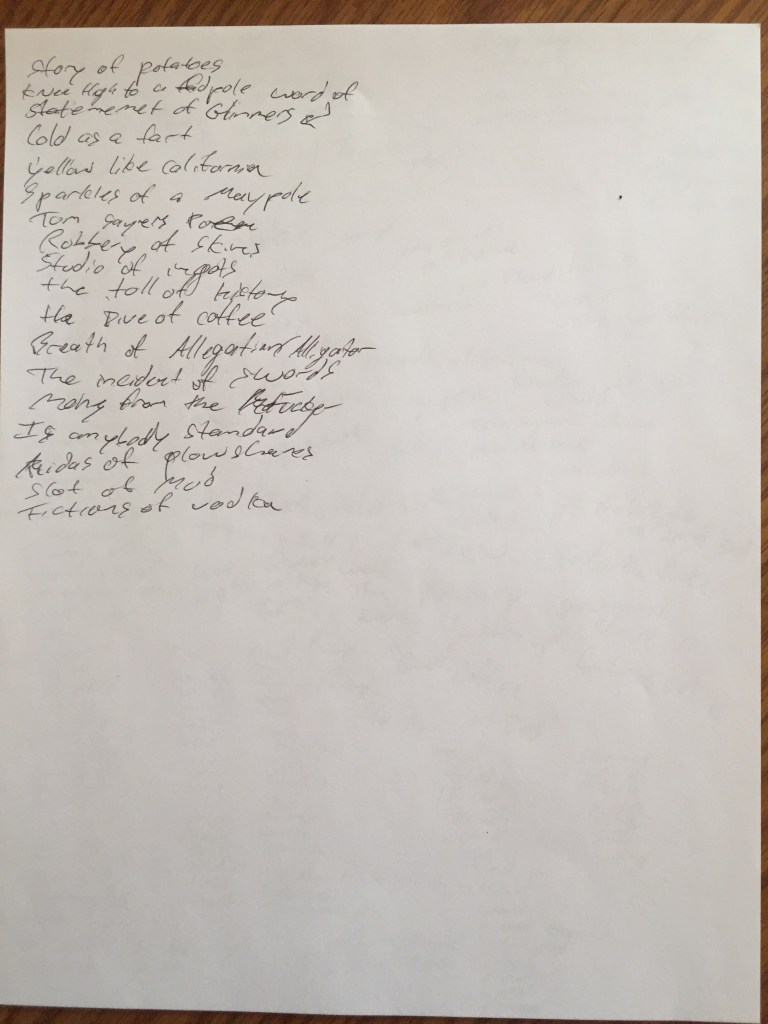 Story of potatoes
Knee High to a tadpole word of
Statememet of Glimmers
Cold as a fart
Yellow like California
Sparkles of a Maypole
Tom Sayers
Robbery of Skins
Studio of ingots
the toll of history
the Dive of coffee
Breath of Allegation/Alligator
The incident of swords
from the
Is anybody standard
of plowshares
Slot of Mud
Fictions of vodka